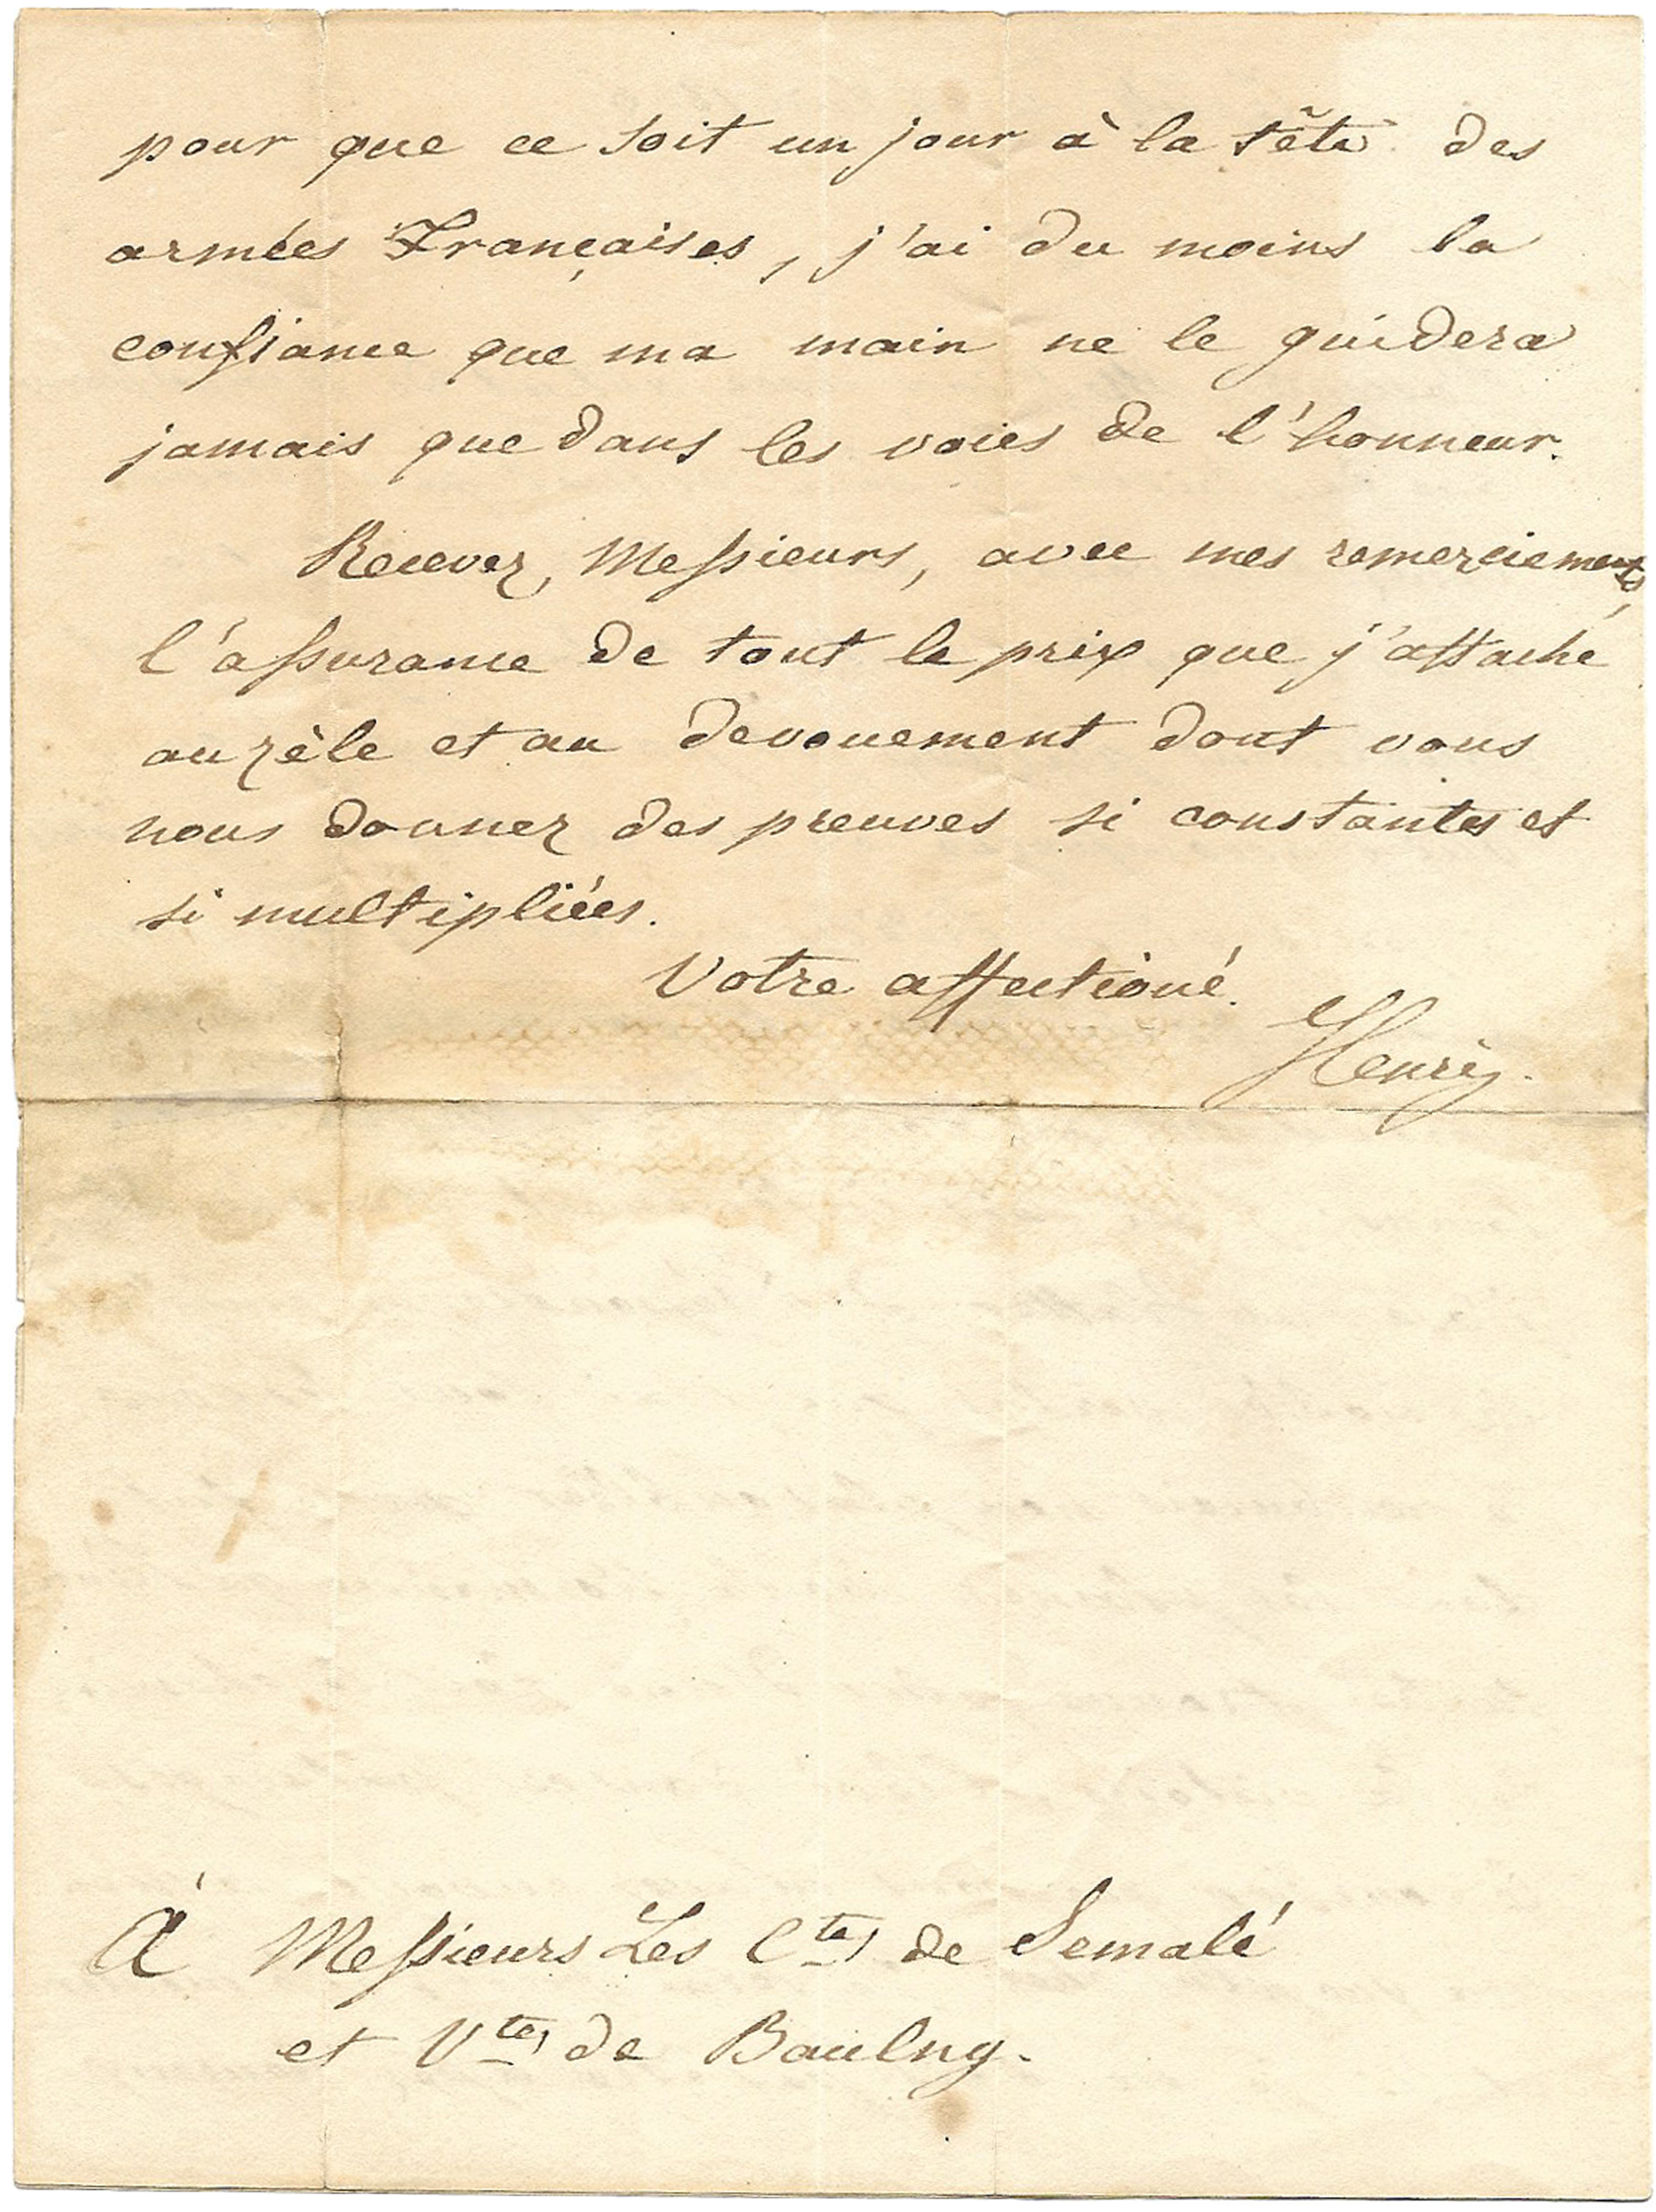 pour que ce soit un jour à la tête des
armées Françaises, j'ai du moins la
confiance que ma main ne le guidera
jamais que dans les voies de l'honneur.
Recevez, Messieurs, avec mes remerciements,
l'assurance de tout le prix que j'attache
au zèle et au devouement dont vous
nous donnez des preuves si constantes et
si multipliées.
Votre affectioné.
Henry.
À Messieurs Les Ctes de Semalé
et Vtes de Baulny.